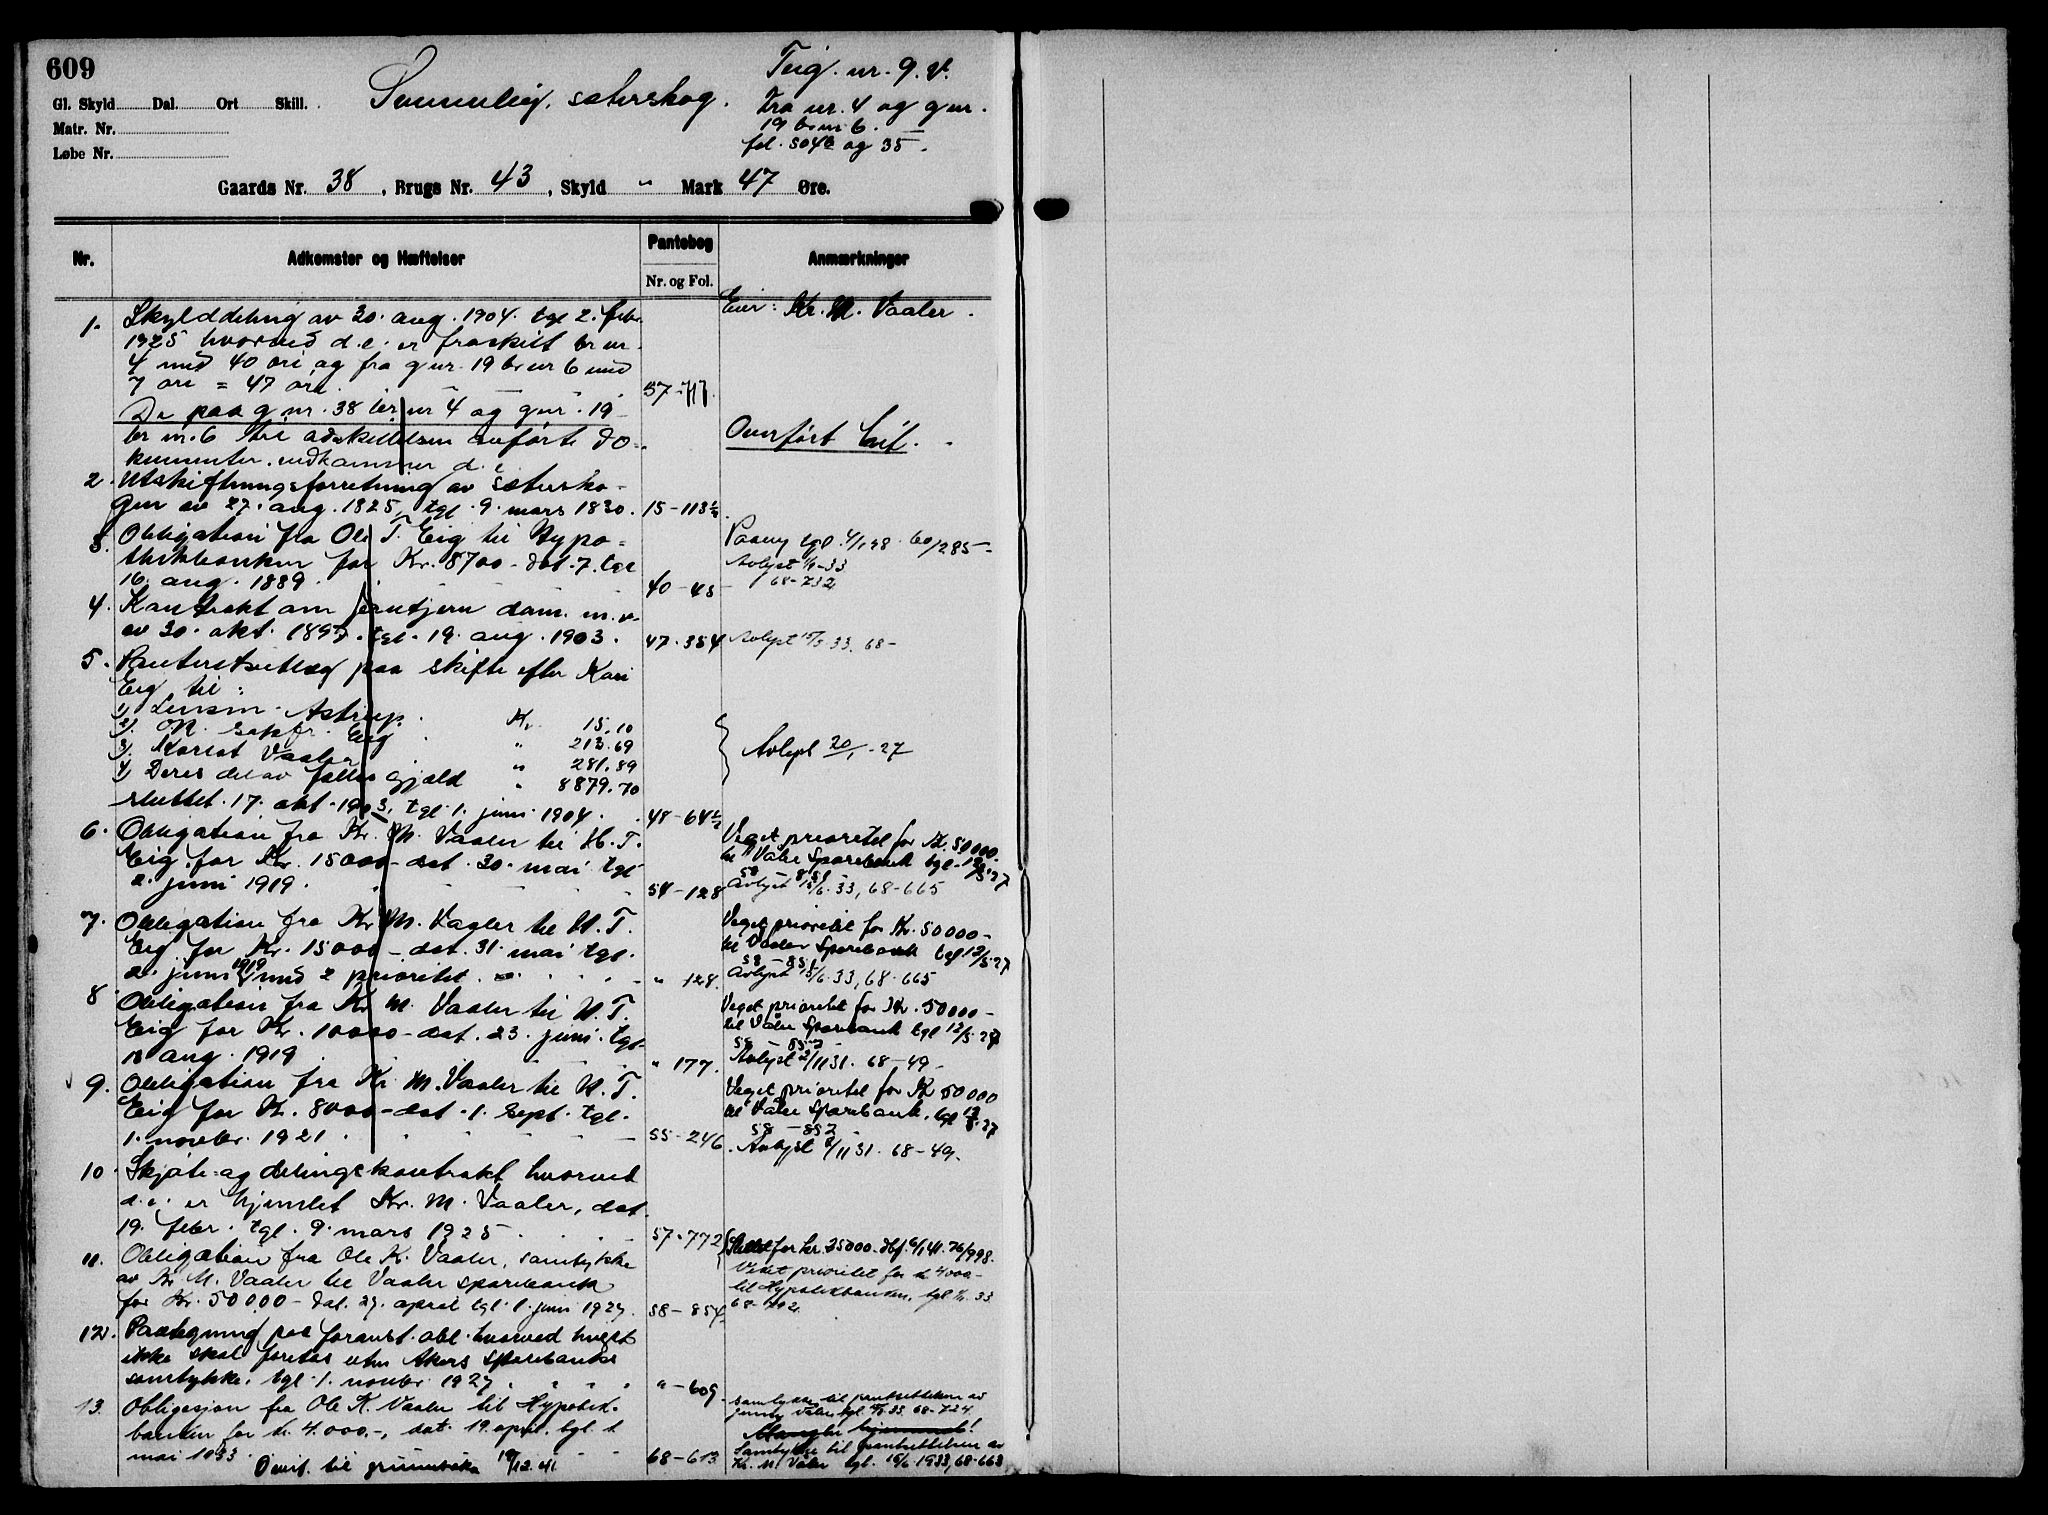 609
Teig. nr. 9. V.
Gl. Skyld Dal. Ort Skill. sæterskog.
Matr. Nr.
Løbe Nr.
Fra nr. 4 og g nr.
19 br nr 6.
fol. 504b og 35.
Gaards Nr. 38, Brugs Nr. 43, Skyld " Mark 47 Øre.
Nr. Adkomster og Hæftelser Pantebog Anmærkninger
Nr. og Fol.
1. Skylddeling av 30. aug. 1904. tgl 2. febr. Eier: Kr. M. Vaaler.
1925 hvorved d.e. er fraskilt br nr.
4 med 40 øre og fra g nr. 19 br nr 6 med
7 øre = 47 øre. 57-717.
De paa g nr. 38 br nr 4 og g nr. 19
br nr. 6 før adskillelsen anførte do- Overført hit.
kumenter vedkommer d.e.
2. Utskiftningsforretning av sætersko-
gen av 27. aug. 1825, tgl. 9. mars 1830. 15-113½
3. Obligation fra Ole T. Eig til Hypo- Paany tgl. 4/1 28. 60/285-
thekbanken for Kr. 8700- dat. 7. tgl Avlyst 33
16. aug. 1889. 40-43 68-732
4. Kontrakt om dam. m.v.
av 30. okt. 1897. tgl. 19. aug. 1903. 47-354 Avlyst 15/5 33. 68-
5. Panteretsutlæg paa skifte efter Kari
Eig til:
1) Astrup. Kr. 15.10
2) Eig " 213.69
3) Karest Vaaler " 281.89 Avlyst 20/1-27
4) Deres del av fælles gjæld " 8879.70
sluttet. 17. okt. 1903, tgl. 1. juni 1904. 48-64½
6. Obligation fra Kr. M. Vaaler til H. T. Veget prioritet for Kr. 50000-
Eig for Kr. 15000- dat. 30. mai tgl til Våler Sparebank tgl. 12/5-27
2. juni 1919. 54-128 Avlyst 15/6. 33, 68-665
7. Obligation fra Kr. M. Vaaler til H. T. Veget prioritet for Kr. 50000-
Eig for Kr. 15000- dat. 31. mai tgl. til Vaaler Sparebank tgl 12/5-27
2. juni 1919 med 2 prioritet. " 128. Avlyst 15/6. 33, 68-665
8. Obligation fra Kr. M. Vaaler til H. T. Veget prioritet for Kr. 50000-
Eig for Kr. 10000- dat. 23. juni. tgl. til Våler Sparebank tgl 12/5-27
13 aug. 1919. " 177. Avlyst 2/11 31. 68-49-
9. Obligation fra Kr. M. Vaaler til H. T. Veget prioritet for Kr 50000
Eig for Kr. 8000- dat. 1. sept. tgl. til Våler Sparebank, tgl 12/5-27
58-852
1. novbr. 1921. 55-246. Avlyst 2/11 31. 68-49.
10. Skjøte- og delingskontrakt hvorved
d.e. er hjemlet Kr. M. Vaaler, dat.
19. febr. tgl. 9. mars 1925 57-772
11. Obligation fra Ole K. Vaaler, samtykke Slettet for kr. 25000. 6/1 41. 76/998.
av Kr. M. Vaaler til Vaaler sparebank Veket prioritet for kr 4000-
for Kr. 50000- dat. 27. april tgl. 1. juni 1927. 58-854 til Hypotekbanken, tgl 33
12. Paategning paa foranst. obl. hvorved hugst
ikke skal foretas uten Akers Sparebanks
samtykke. tgl. 1. novbr. 1927 " -609
13. Obligasjon fra Ole K. Vaaler til Hypotek- Samtykke til pantsettelsen av
banken for kr. 4.000.-, dat. 19. april, tgl. 1. Våler tgl. 33. 68-724.
mai 1933. 68-613 Mangler hjemmel!
Samtykke til pantsettelsen av
Overf. til grunnboka 19/12.41. Kr. M. Våler tgl. 15/6 1933, 68-663